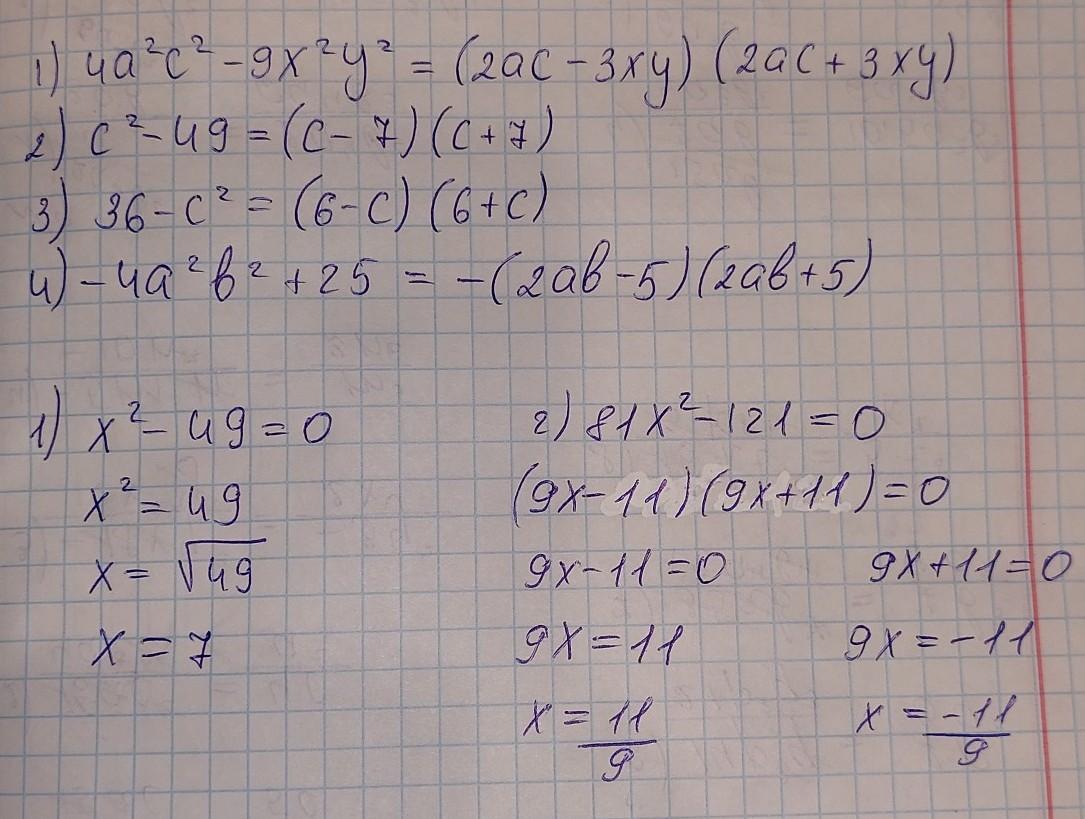 1) 4a²c² - 9x²y² = (2ac - 3xy) (2ac + 3xy)
2) c² - 49 = (c - 7) (c + 7)
3) 36 - c² = (6 - c) (6 + c)
4) - 4a²b² + 25 = - (2ab - 5) (2ab + 5)
1) x² - 49 = 0
x² = 49
x = √49
x = 7
2) 81x² - 121 = 0
(9x - 11) (9x + 11) = 0
9x - 11 = 0 9x + 11 = 0
9x = 11 9x = -11
x = 11/9 x = -11/9